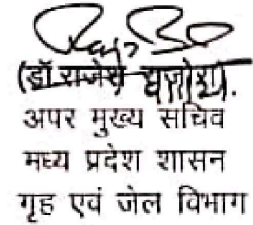 (डॉ. राजेश राजौरा)
अपर मुख्य सचिव
मध्य प्रदेश शासन
गृह एवं जेल विभाग